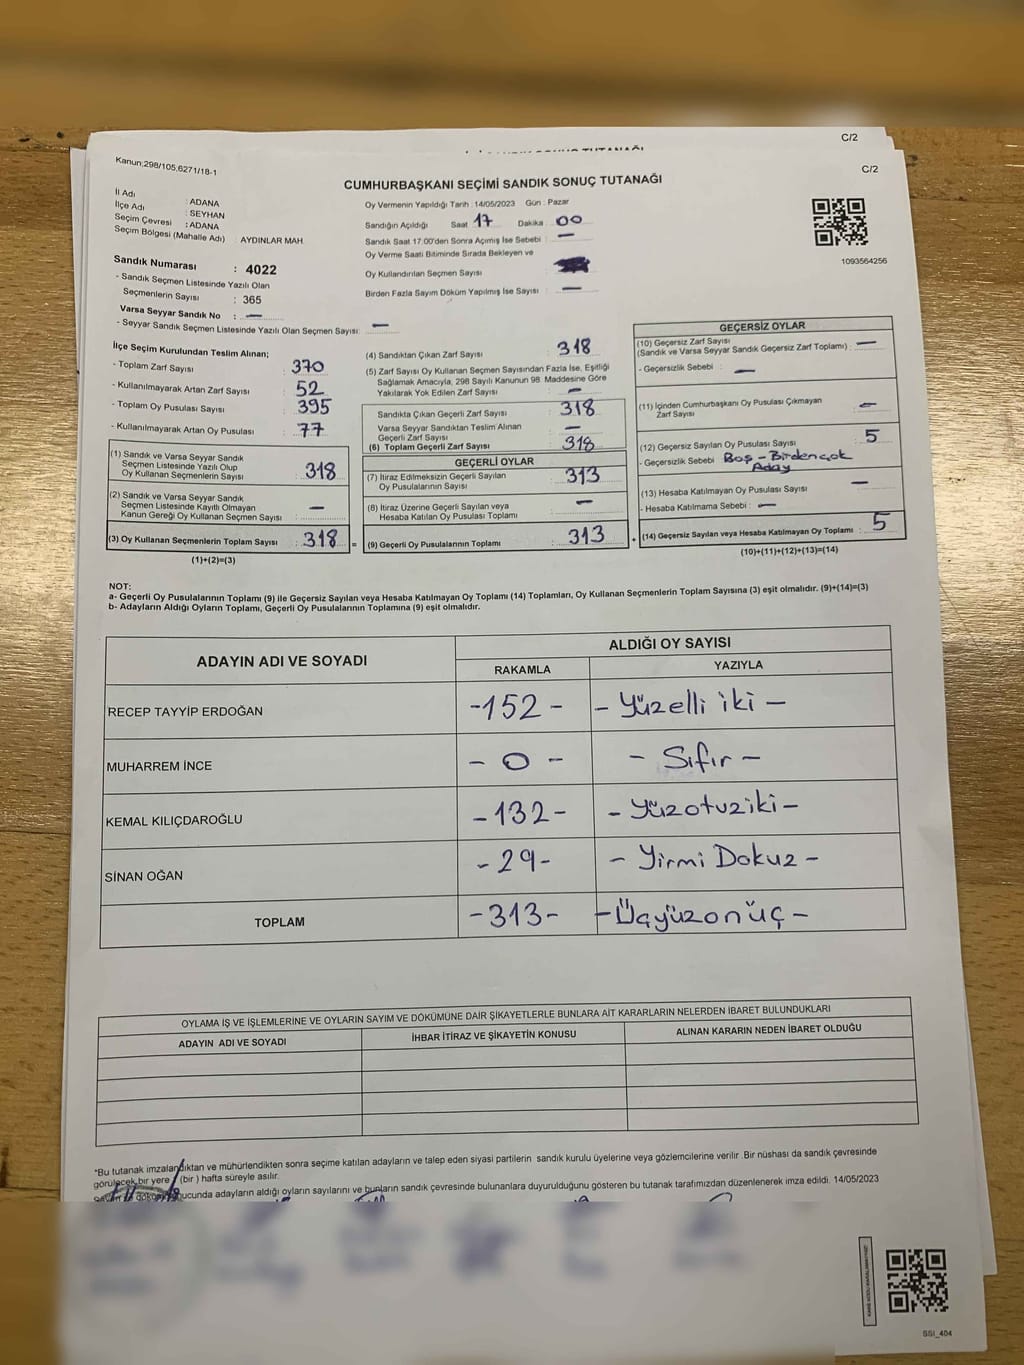 C/2
Kanun;298/105,6271/18-1
C/2
CUMHURBAŞKANI SEÇİMİ SANDIK SONUÇ TUTANAĞI
İl Adı : ADANA
İlçe Adı : SEYHAN
Seçim Çevresi : ADANA
Seçim Bölgesi (Mahalle Adı) AYDINLAR MAH.
Sandık Numarası : 4022
- Sandık Seçmen Listesinde Yazılı Olan
Seçmenlerin Sayısı : 365
Varsa Seyyar Sandık No : —
- Seyyar Sandık Seçmen Listesinde Yazılı Olan Seçmen Sayısı: —
Oy Vermenin Yapıldığı Tarih : 14/05/2023 Gün : Pazar
Sandığın Açıldığı Saat 17 Dakika 00
Sandık Saat 17.00'den Sonra Açımış İse Sebebi : —
Oy Verme Saati Bitiminde Sırada Bekleyen ve
Oy Kullandırılan Seçmen Sayısı :
Birden Fazla Sayım Döküm Yapılmış İse Sayısı : —
1093564256
İlçe Seçim Kurulundan Teslim Alınan;
- Toplam Zarf Sayısı : 370
- Kullanılmayarak Artan Zarf Sayısı : 52
- Toplam Oy Pusulası Sayısı : 395
- Kullanılmayarak Artan Oy Pusulası : 77
(1) Sandık ve Varsa Seyyar Sandık
Seçmen Listesinde Yazılı Olup
Oy Kullanan Seçmenlerin Sayısı : 318
(2) Sandık ve Varsa Seyyar Sandık
Seçmen Listesinde Kayıtlı Olmayan
Kanun Gereği Oy Kullanan Seçmen Sayısı : —
(3) Oy Kullanan Seçmenlerin Toplam Sayısı : 318 =
(1)+(2)=(3)
(4) Sandıktan Çıkan Zarf Sayısı : 318
(5) Zarf Sayısı Oy Kullanan Seçmen Sayısından Fazla İse, Eşitliği
Sağlamak Amacıyla, 298 Sayılı Kanunun 98. Maddesine Göre
Yakılarak Yok Edilen Zarf Sayısı : —
Sandıkta Çıkan Geçerli Zarf Sayısı : 318
Varsa Seyyar Sandıktan Teslim Alınan
Geçerli Zarf Sayısı : —
(6) Toplam Geçerli Zarf Sayısı : 318
GEÇERLİ OYLAR
(7) İtiraz Edilmeksizin Geçerli Sayılan
Oy Pusulalarının Sayısı : 313
(8) İtiraz Üzerine Geçerli Sayılan veya
Hesaba Katılan Oy Pusulası Toplamı : —
(9) Geçerli Oy Pusulalarının Toplamı : 313 +
GEÇERSİZ OYLAR
(10) Geçersiz Zarf Sayısı
(Sandık ve Varsa Seyyar Sandık Geçersiz Zarf Toplamı) : —
- Geçersizlik Sebebi : —
(11) İçinden Cumhurbaşkanı Oy Pusulası Çıkmayan
Zarf Sayısı : —
(12) Geçersiz Sayılan Oy Pusulası Sayısı : 5
- Geçersizlik Sebebi Boş - Birdençok
Aday
(13) Hesaba Katılmayan Oy Pusulası Sayısı : —
- Hesaba Katılmama Sebebi : —
(14) Geçersiz Sayılan veya Hesaba Katılmayan Oy Toplamı : 5
(10)+(11)+(12)+(13)=(14)
NOT:
a- Geçerli Oy Pusulalarının Toplamı (9) ile Geçersiz Sayılan veya Hesaba Katılmayan Oy Toplamı (14) Toplamları, Oy Kullanan Seçmenlerin Toplam Sayısına (3) eşit olmalıdır. (9)+(14)=(3)
b- Adayların Aldığı Oyların Toplamı, Geçerli Oy Pusulalarının Toplamına (9) eşit olmalıdır.
ADAYIN ADI VE SOYADI ALDIĞI OY SAYISI
RAKAMLA YAZIYLA
RECEP TAYYİP ERDOĞAN -152- - Yüzelli iki -
MUHARREM İNCE - 0 - - Sıfır -
KEMAL KILIÇDAROĞLU -132- - Yüzotuziki -
SİNAN OĞAN -29- - Yirmi Dokuz -
TOPLAM -313- -Üçyüzonüç -
OYLAMA İŞ VE İŞLEMLERİNE VE OYLARIN SAYIM VE DÖKÜMÜNE DAİR ŞİKAYETLERLE BUNLARA AİT KARARLARIN NELERDEN İBARET BULUNDUKLARI
ADAYIN ADI VE SOYADI İHBAR İTİRAZ VE ŞİKAYETİN KONUSU ALINAN KARARIN NEDEN İBARET OLDUĞU
*Bu tutanak imzalandıktan ve mühürlendikten sonra seçime katılan adayların ve talep eden siyasi partilerin sandık kurulu üyelerine veya gözlemcilerine verilir .Bir nüshası da sandık çevresinde
görülecek bir yere (bir ) hafta süreyle asılır.
ucunda adayların aldığı oyların sayılarını ve bunların sandık çevresinde bulunanlara duyurulduğunu gösteren bu tutanak tarafımızdan düzenlenerek imza edildi. 14/05/2023
SSI_404